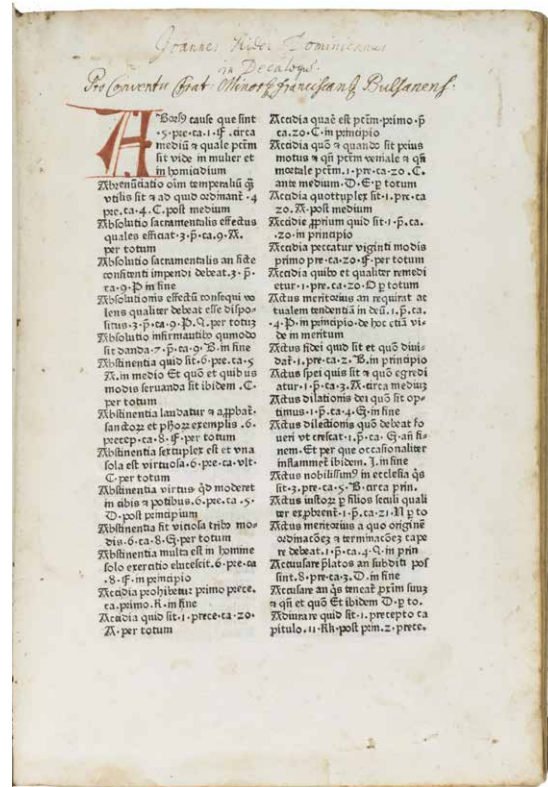 Joannes Nider Dominicanus
in Decalogū.
Pro Conventu Frat: Minorū franciscanoꝝ Bulsanens:
ABorsꝰ cause que sint
·5·pre·ca·1·F·circa
mediū ⁊ quale pctm̄
sit vide in mulier et
in homicidium
Abrenūciatio oīm temporaliū q̄
vtilis sit ⁊ ad quid ordinant̄·4
pre·ca·4·C·post medium
Absolutio sacramentalis effectus
quales efficiat·3·p̄·ca·9·A·
per totum
Absolutio sacramentalis an ficte
confitenti impendi debeat·3·p̄·
ca·9·P in fine
Absolutionis effectū consequi vo
lens qualiter debeat esse dispo⸗
situs·3·p̄·ca·9·P·Q·per totuʒ
Absolutio infirmantibꝰ quomodo
sit danda·7·p̄·ca·9·B·in fine
Abstinentia quid sit·6·pre·ca·5
A·in medio Et quō et quibus
modis seruanda sit ibidem·C·
per totum
Abstinentia laudatur ⁊ aꝓbat̄·
sanctoꝝ et ph̄oꝝ exemplis·6·
precep·ca·8·F·per totum
Abstinentia sextuplex est et vna
sola est virtuosa·6·pre·ca·vlt·
C·per totum
Abstinentia virtus qď moderet
in cibis ⁊ potibus·6·pre·ca·5·
D·post principium
Abstinentia sit viciosa tribꝰ mo⸗
dis·6·ca·8·G·per totum
Abstinentia multa est in homine
solo exercitio elucescit·6·pre·ca
·8·F·in principio
Accidia prohibetur primo prece·
ca·primo·K·in fine
Accidia quid sit·1·prece·ca·20·
A·per totum
Accidia quae est pctm̄·primo·p̄
ca·20·C·in principio
Accidia quō ⁊ quando sit prius
motus ⁊ qn̄ pctm̄ veniale ⁊ qn̄
mortale pctm̄·1·pre·ca·20·C·
ante medium·D·E·ꝑ totum
Accidia quottuplex sit·1·pre·ca
20·A·post medium
Accidie ꝓprium quid sit·1·p̄·ca·
·20·in principio
Accidia peccatur viginti modis
primo pre·ca·20·F·per totum
Accidia quibꝰ et qualiter remedi
etur·1·pre·ca·20·O ꝑ totum
Actus meritorius an requirat ac
tualem tendentiā in deū·1·p̄·ca·
·4·P·in principio·de hoc etiā vi⸗
de in meritum
Actus fidei qud sit et quō diui⸗
dat̄·1·pre·ca·2·B·in principio
Actus spei quis sit ⁊ quō egredi
atur·1·p̄·ca·3·A·circa mediuʒ
Actus dilationis dei quō sit op⸗
timus·1·p̄·ca·4·G·in fine
Actus dilectionis quō debeat fo
ueri vt crescat·1·p̄·ca·G·an̄ fi⸗
nem·Et per que occasionaliter
inflammet̄ ibidem·I·in fine
Actus nobilissimꝰ in ecclesia q̄s
sit·3·pre·ca·5·B·circa prin·
Actus iustoꝝ ꝑ filios seculi quali
ter exp̄bent̄·1·p̄·ca·21·N ꝑ to
Actus meritorius a quo originē
ordinacōeʒ ⁊ terminacōeʒ cape
re debeat·1·p̄·ca·4·Q·in prin
Accusare p̄latos an subditi pos
sint·8·pre·ca·3·D·in fine
Accusare an q̄s teneat̄ ꝓxim̄ suuʒ
⁊ qn̄ et quō Et ibidem D·ꝑ to·
Adiurare quid sit·1·precepto ca
pitulo·11·Kk·post prin·2·prece·